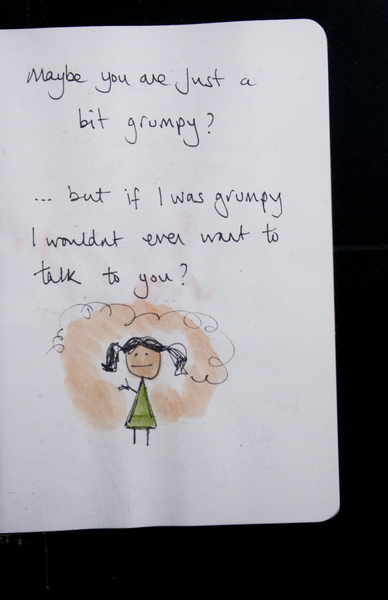 Maybe you are Just a
bit grumpy?
... but if I was grumpy
I wouldnt ever want to
talk to you?